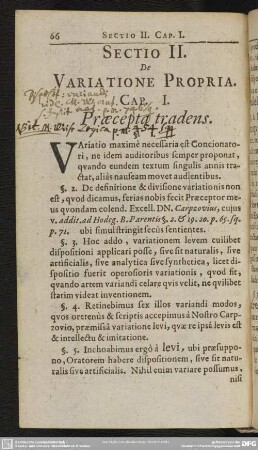 66 SECTIO II. CAP. I.
SECTIO II.
De
VARIATIONE PROPRIA.
CAP. I.
Præcepta tradens.
VAriatio maximè necessaria est Concionato-
ri, ne idem auditoribus semper proponat,
quando eundem textum singulis annis tra-
ctat, aliàs nauseam movet audientibus.
§. 2. De definitione & divisione variationis non
est, quod dicamus, ferias nobis fecit Præceptor me-
us qvondam colend. Excell. DN. Carpzovius, cujus
v. addit. ad Hodeg. B. Parentis §. 2. & 19. 20. p. 65. sq.
p. 71. ubi simul stringit secùs sentientes.
§. 3. Hoc addo, variationem levem cuilibet
dispositioni applicari posse, sive sit naturalis, sive
artificialis, sive analytica sive synthetica, licet di-
spositio fuerit operosioris variationis, quod sit,
quando artem variandi celare qvis velit, ne qvilibet
statim videat inventionem.
§. 4. Retinebimus sex illos variandi modos,
quos ore tenùs & scriptis accepimus à Nostro Carp-
zovio, præmissâ variatione levi, qvæ re ipsâ levis est
& intellectu & imitatione.
§. 5. Inchoabimus ergò à levi, ubi præsuppo-
no, Oratorem habere dispositionem, sive sit natu-
ralis sive artificialis. Nihil enim variare possumus,
nisi